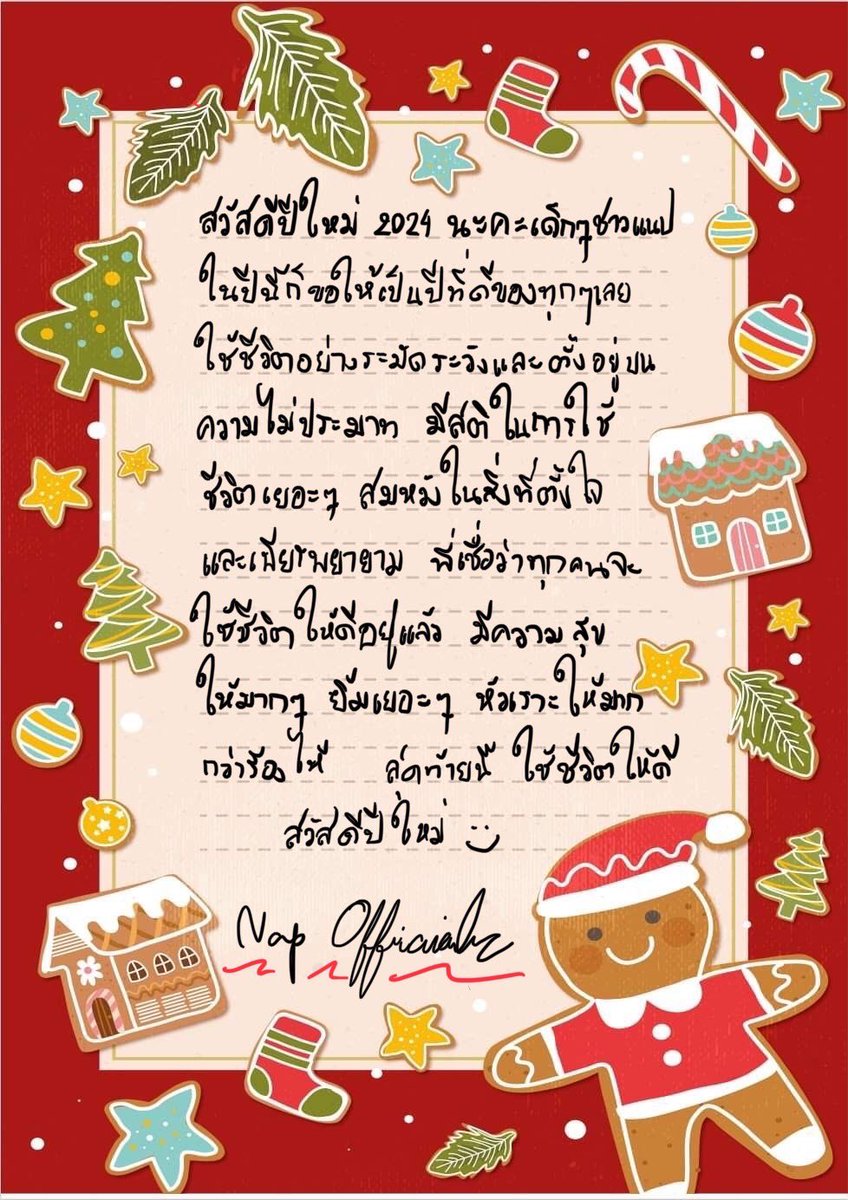 สวัสดีปีใหม่ 2024 นะคะเด็กๆชาวแนป
ในปีนี้ก็ขอให้เป็นปีที่ดีของทุกๆเลย
ใช้ชีวิตอย่างระมัดระวังและตั้งอยู่บน
ความไม่ประมาท มีสติในการใช้
ชีวิตเยอะๆ สมหวังในสิ่งที่ตั้งใจ
และเพียรพยายาม พี่เชื่อว่าทุกคนจะ
ใช้ชีวิตให้ดีอยู่แล้ว มีความสุข
ให้มากๆ ยิ้มเยอะๆ หัวเราะให้มาก
กว่าร้องไห้ สุดท้ายนี้ ใช้ชีวิตให้ดี
สวัสดีปีใหม่
Nap